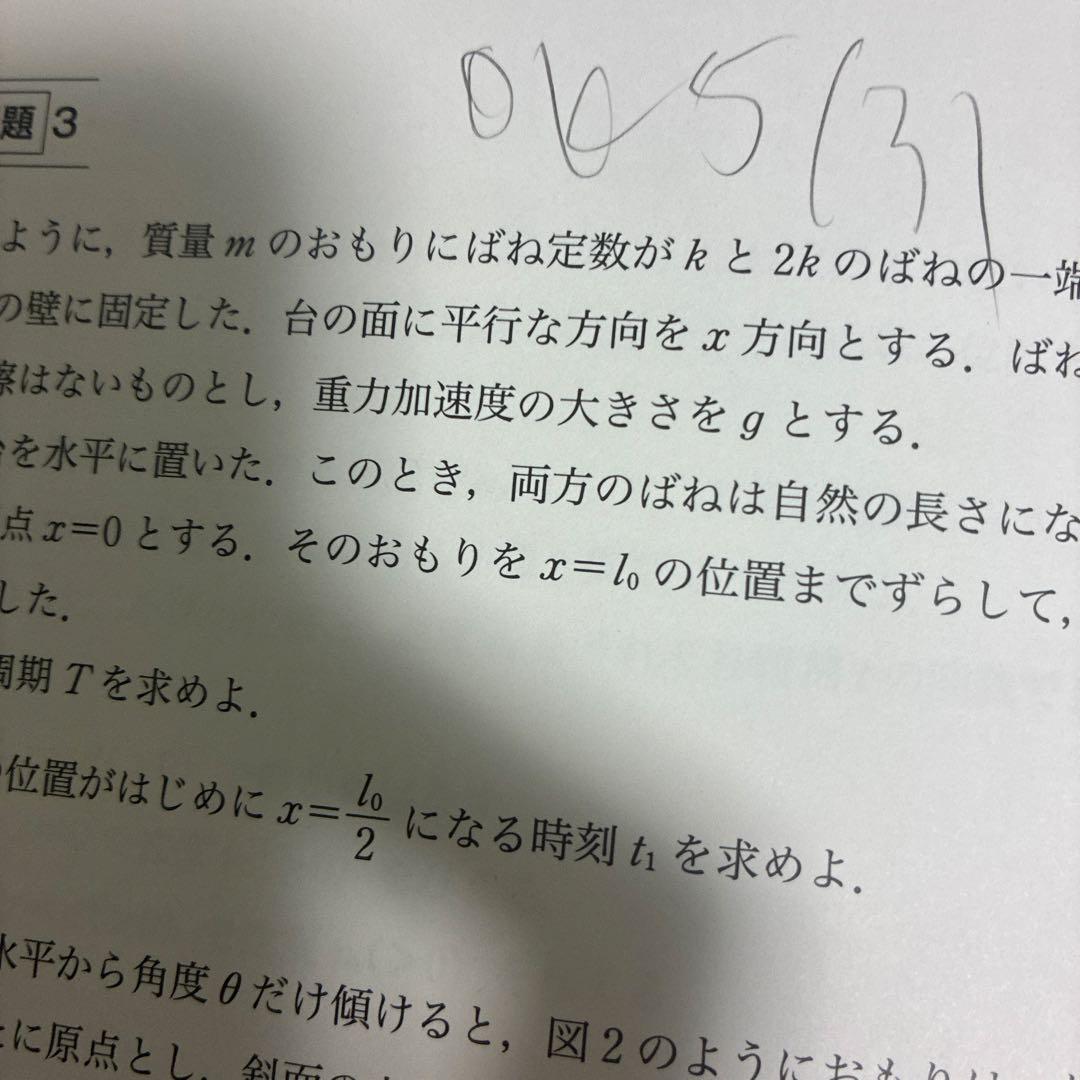 OK 5 (3)
題 3
ように,質量 m のおもりにばね定数が k と 2k のばねの一端
の壁に固定した.台の面に平行な方向を x 方向とする.ばね
擦はないものとし,重力加速度の大きさを g とする.
を水平に置いた.このとき,両方のばねは自然の長さにな
点 x=0 とする.そのおもりを x=l₀ の位置までずらして,
した.
周期 T を求めよ.
位置がはじめに x=l₀/2 になる時刻 t₁ を求めよ.
水平から角度 θ だけ傾けると,図2のようにおもりは
に原点とし,斜面の